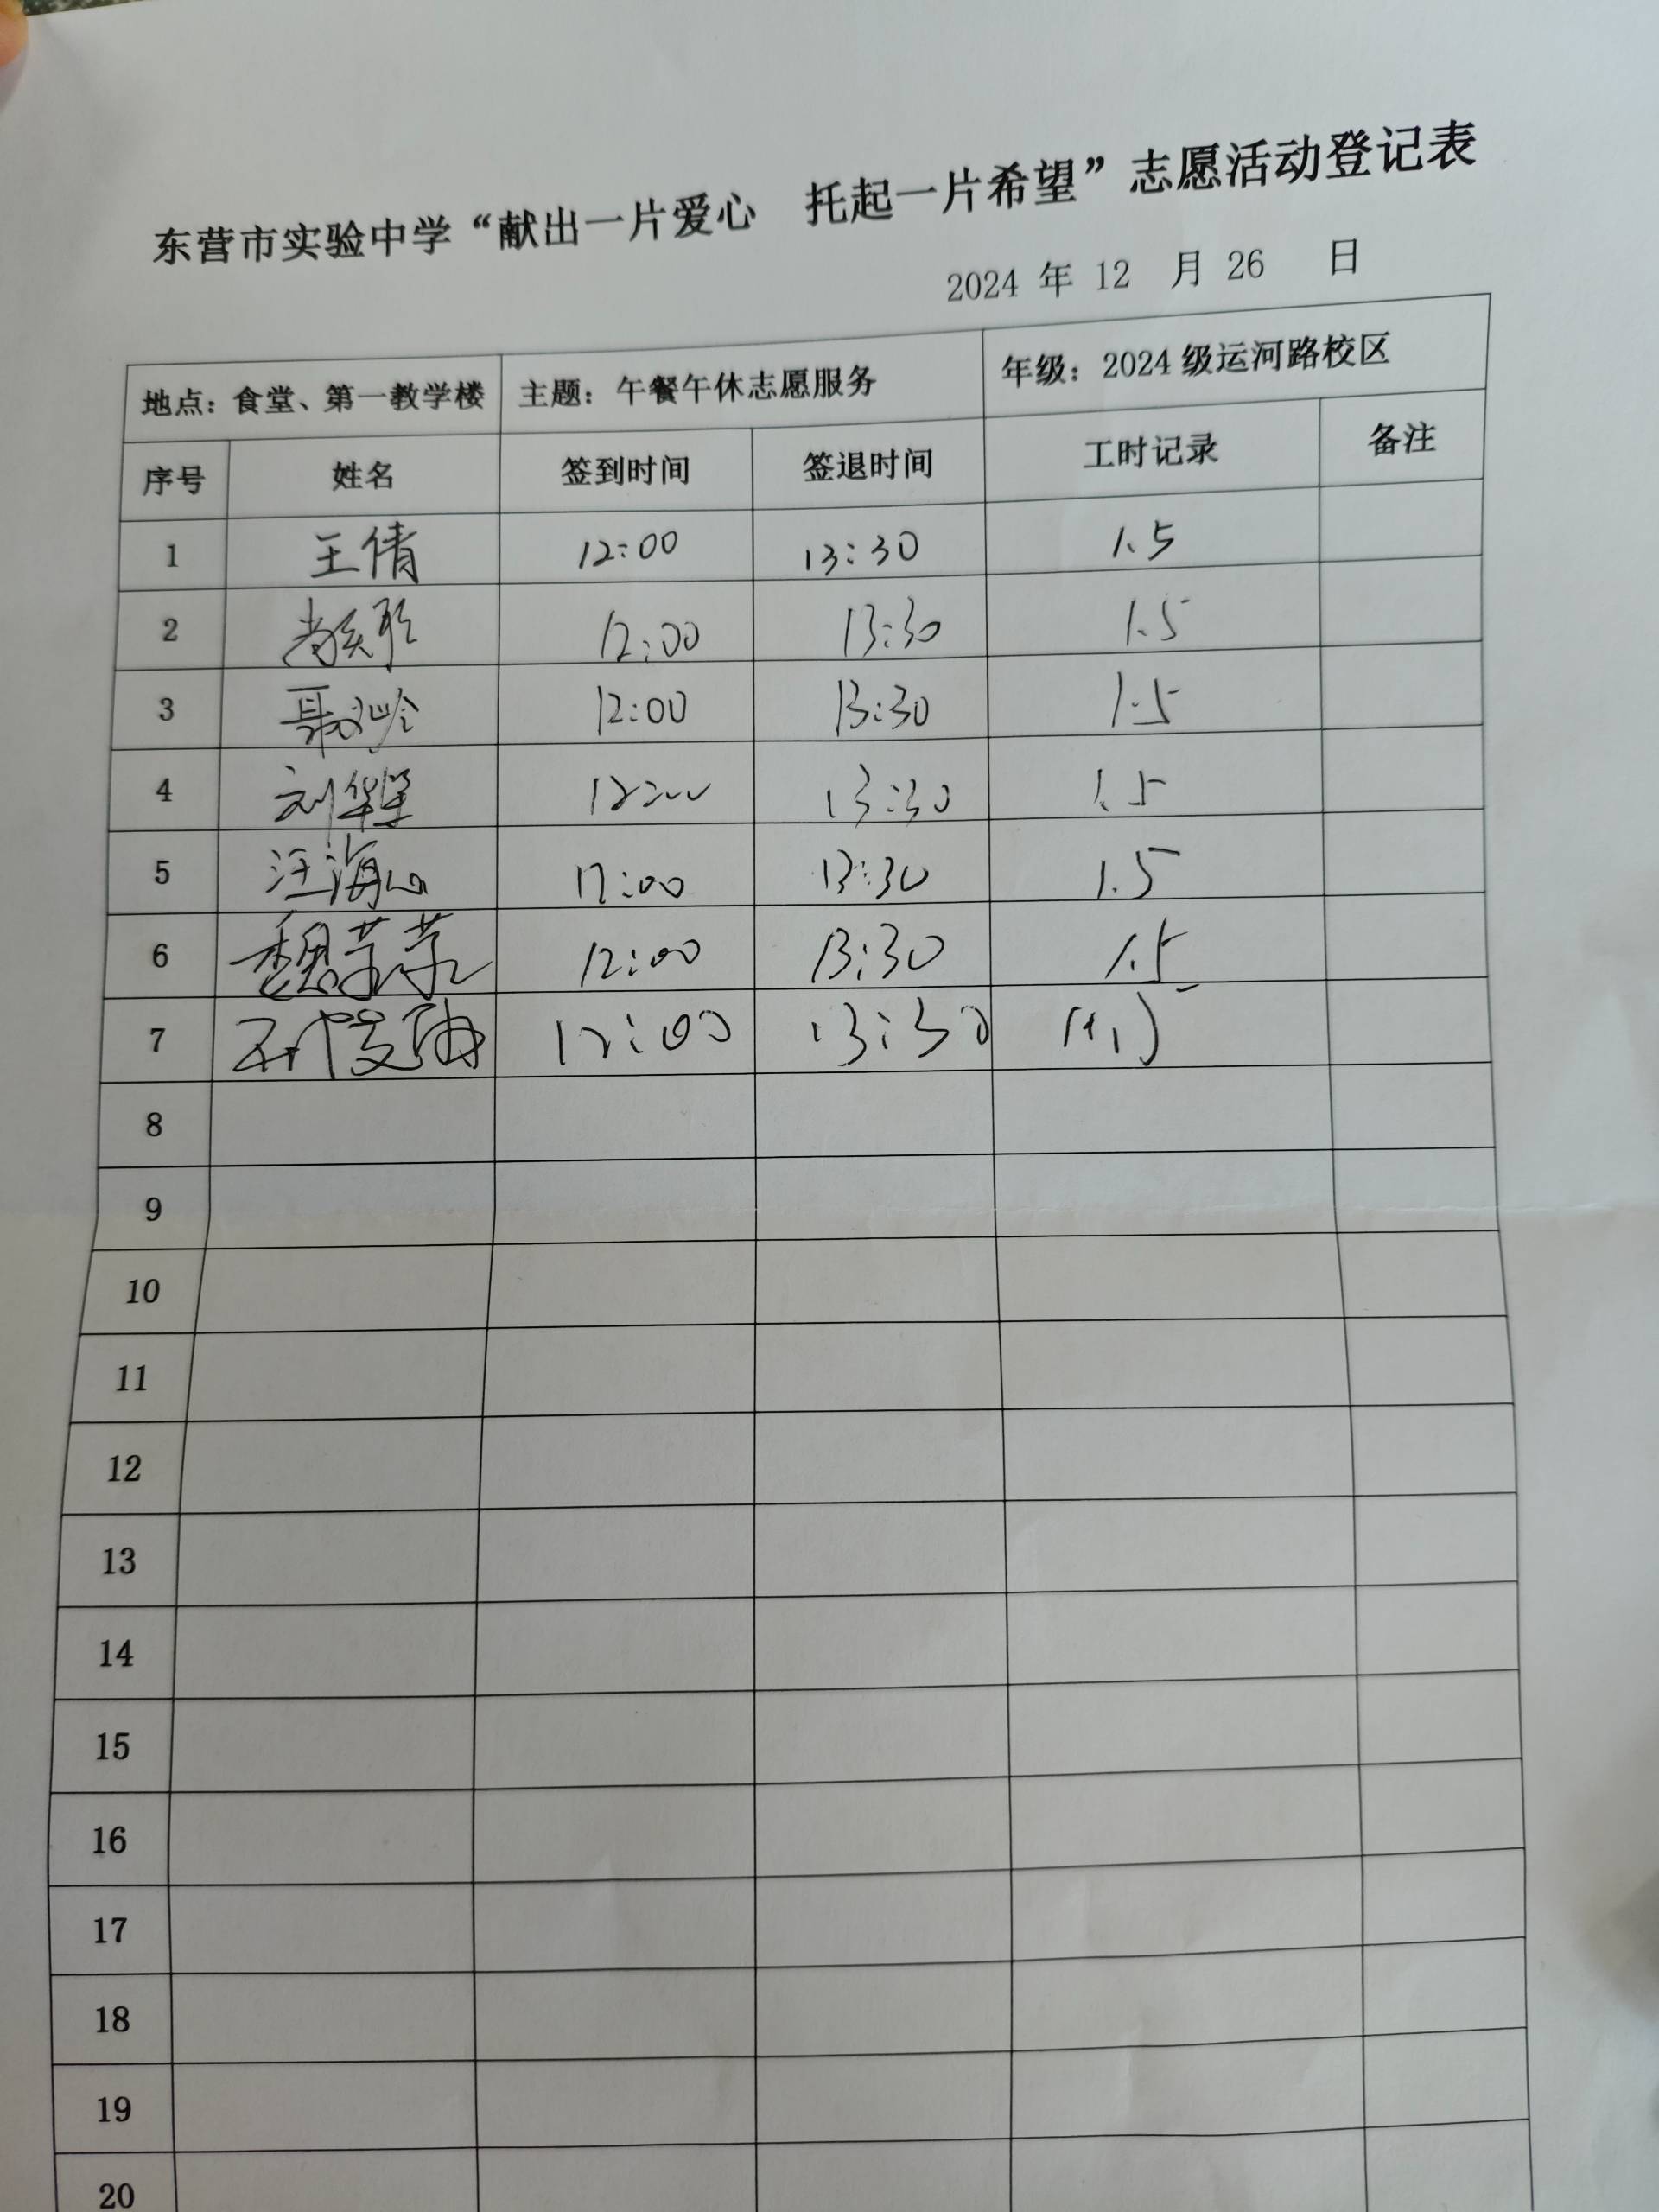 东营市实验中学“献出一片爱心 托起一片希望”志愿活动登记表
2024 年 12 月 26 日
地点：食堂、第一教学楼 主题：午餐午休志愿服务 年级：2024 级运河路校区
序号 姓名 签到时间 签退时间 工时记录 备注
1 王倩 12:00 13:30 1.5
2 12:00 13:30 1.5
3 12:00 13:30 1.5
4 刘华 12:00 13:30 1.5
5 汪海 12:00 13:30 1.5
6 魏荣荣 12:00 13:30 1.5
7 12:00 13:30
8
9
10
11
12
13
14
15
16
17
18
19
20